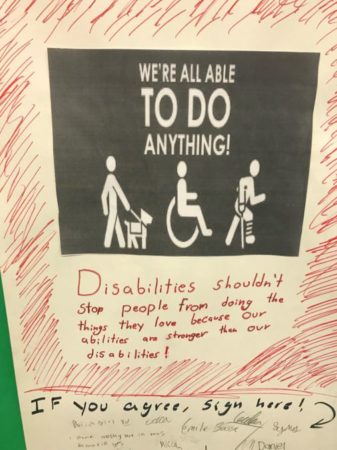 WE'RE ALL ABLE
TO DO
ANYTHING!
Disabilities shouldn't
stop people from doing the
things they love because our
abilities are stronger then our
disabilities!
IF You agree, Sign here!
Daniel